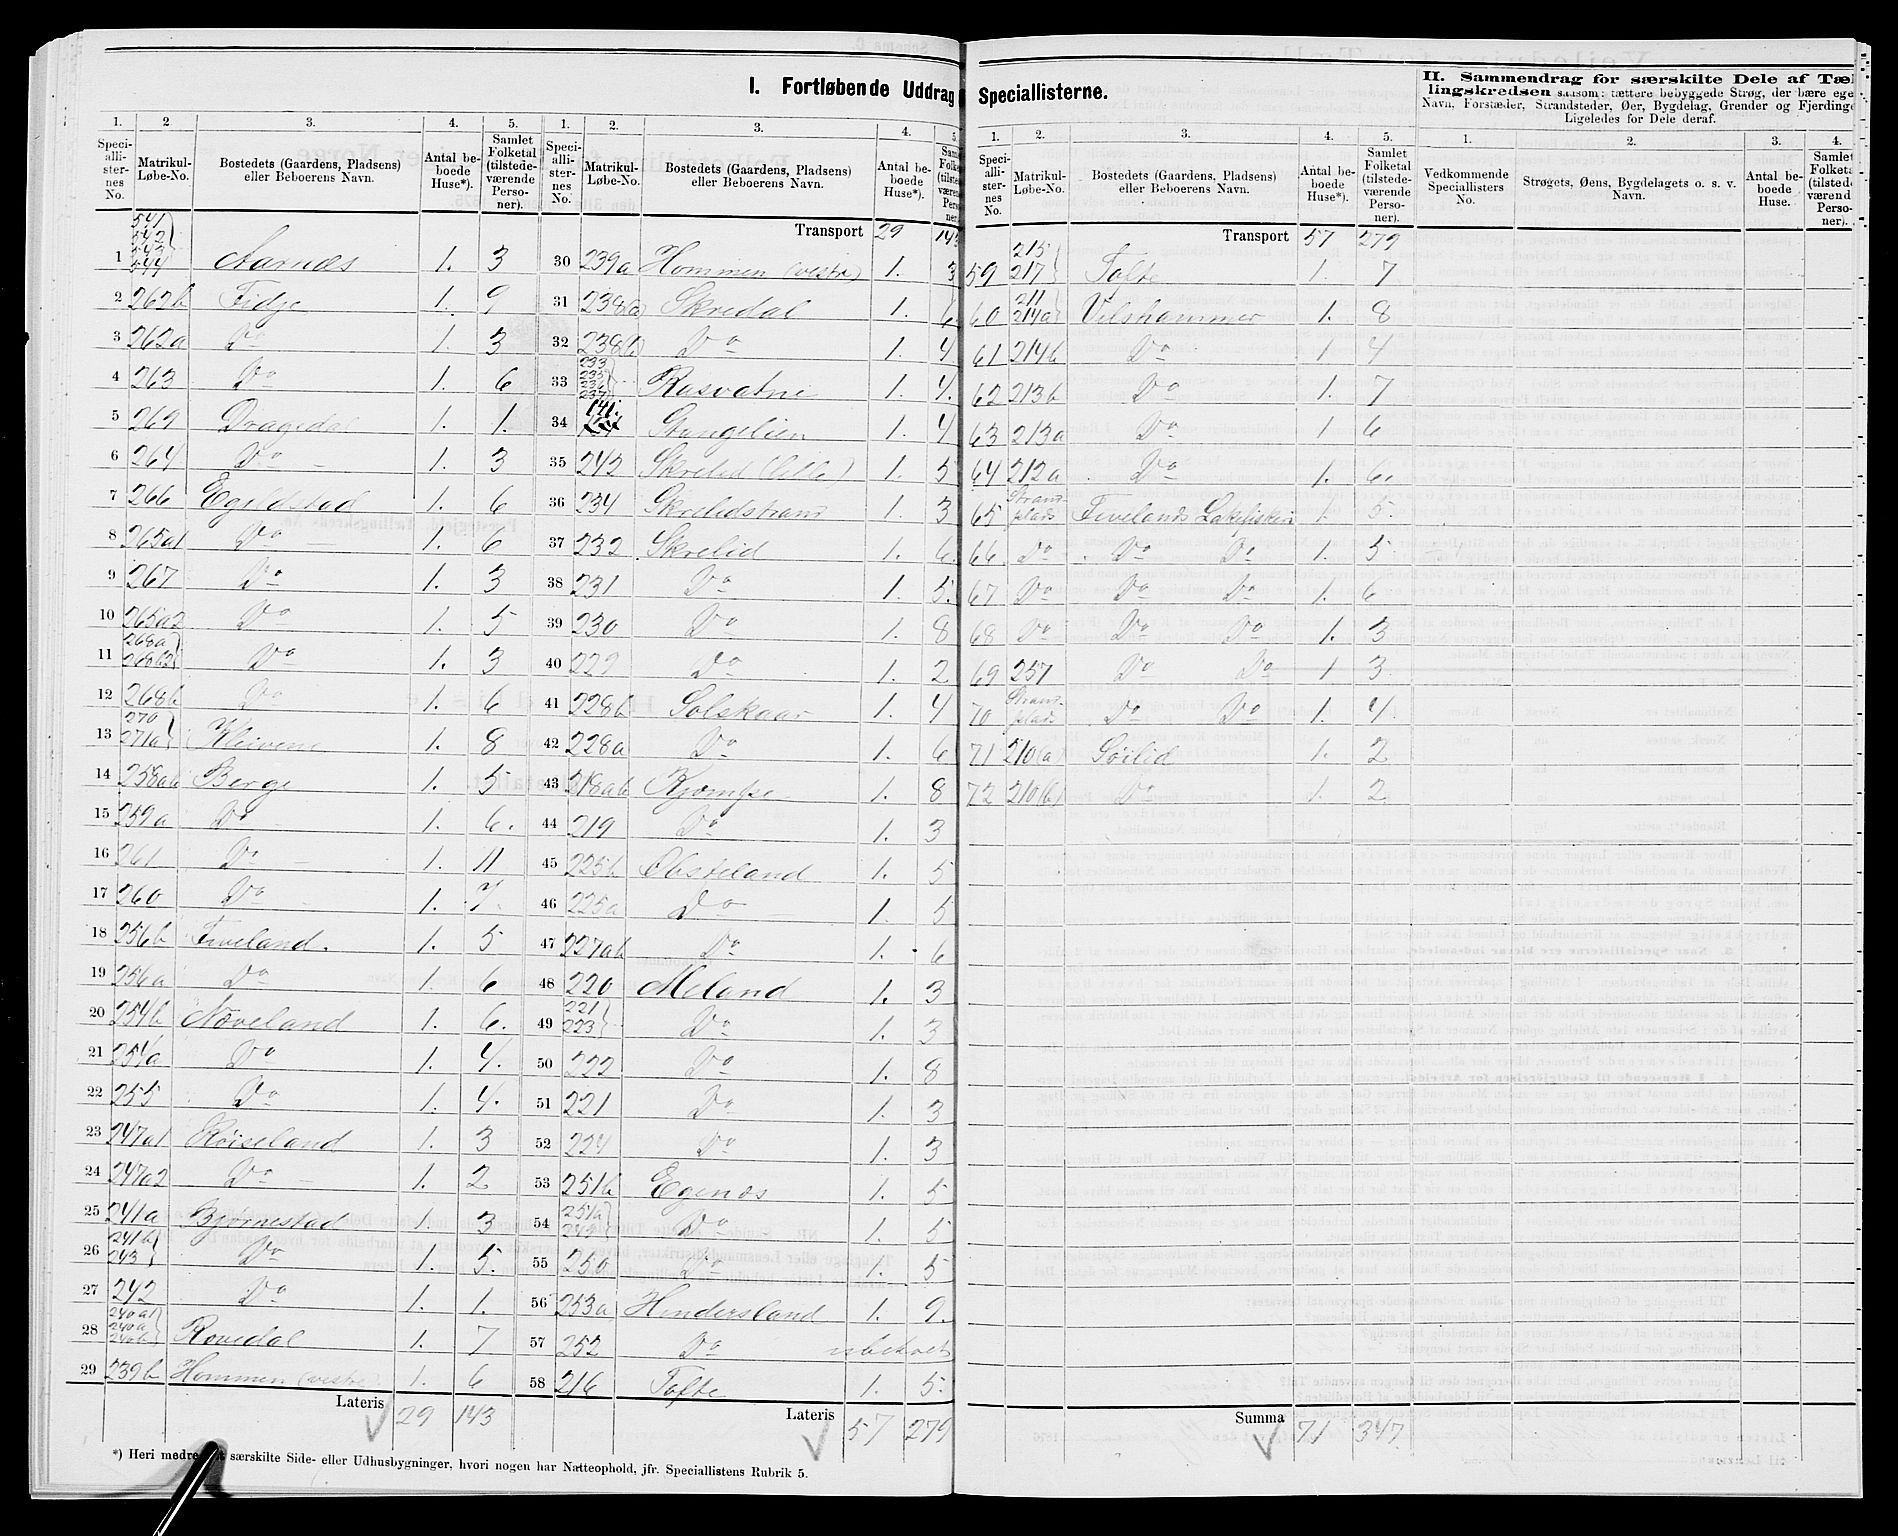 I. Fortløbende Uddrag Speciallisterne.
II. Sammendrag for særskilte Dele af Tæl
lingskredsen saasom: tættere bebyggede Strøg, der bære ege
Navn, Forstæder, Strandsteder, Øer, Bygdelag, Grender og Fjerdinge
Ligeledes for Dele deraf.
1. 2 3. 4. 5. 1. 2. 3. 4. 5
1. 2. 3. 4. 5. 1. 2. 3. 4.
Speci-alli-ster-nes No. Matrikul-Løbe-No. Bostedets (Gaardens, Pladsens) eller Beboerens Navn. Antal be-boede Huse*). Samlet Folketal (tilstede-værende Perso-ner).
Speci-alli-ster-nes No. Matrikul-Løbe-No. Bostedets (Gaardens, Pladsens) eller Beboerens Navn. Antal be-boede Huse*). Samlet Folketa (tilsted værend Perso ner).
Speci-alli-ster-nes No. Matrikul-Løbe-No. Bostedets (Gaardens, Pladsens) eller Beboerens Navn. Antal be-boede Huse*). Samlet Folketal (tilstede-værende Perso-ner).
Vedkommende Speciallisters No. Strøgets, Øens, Bygdelagets o. s. v. Navn. Antal be-boede Huse. Samlet Folketa (tilstede værend Perso-ner).
1 541 542 543 544 Aarnæs 1. 3
2 262b Fidje 1. 9
3 262a Do 1. 3
4 263 Do 1. 6
5 269 Dragedal 1. 1.
6 264 Do 1. 3
7 266 Egeldstad 1. 6
8 265a1 Do 1. 6
9 267 Do 1. 3
10 265a2 Do 1. 5
11 268a Do 1. 3
12 268b Do 1. 6
13 270 271a Kleivene 1. 8
14 258ab Berge 1. 5
15 259a Do 1. 6.
16 261 Do 1. 11
17 260 Do 1. 7.
18 256b Fiveland. 1. 5
19 256a Do 1. 6
20 254b Næveland 1. 6.
21 254a Do 1. 4.
22 255 Do 1. 4.
23 247a1 Røiseland 1. 3
24 247a2 Do 1. 2
25 241a Bjørnestad 1. 3
26 241b 243 Do 1. 5.
27 242 Do 1. 1.
28 240a1 240a 240b Rovedal 1. 7
29 239b Hommen (vestre) 1. 6
Lateris 29 143
Transport 29 143
30 239a Hommen (vestre) 1. 3
31 238(a) Skredal 1. 6
32 238(b) Do 1. 4.
33 233 235 236 237 Rasvatne 1. 4.
34 141. Stangelien 1. 4
35 242 Skrelid (lille) 1. 5
36 234 Skrelidstrand 1. 3
37 232 Skrelid 1. 6.
38 231 Do 1. 5.
39 230 Do 1. 8
40 229 Do 1. 2
41 228b Solskaar 1. 4
42 228a Do 1. 6
43 218ab 1. 8
44 219 Do 1. 3
45 225b Obsteland 1. 5
46 225a Do 1. 5
47 227ab Do 1. 6
48 220 Meland 1. 3
49 221 223 Do 1. 3
50 222 Do 1. 8
51 221 Do 1. 3
52 224 Do 1. 3
53 251b Egenæs 1. 5
54 251a 249 Do 1. 5
55 250 Do 1. 5
56 253a Hindersland 1. 9.
57 252 Do ubeboet
58 216 Tofte 1. 5.
Lateris 57 279
Transport 57 279
59 215 217 Tofte 1. 7
60 211 214a Vilshammer 1. 8
61 214b Do 1 4
62 213b Do 1. 7
63 213a Do 1 6
64 212a Do 1. 6.
65 Strand-plads Fivelands 1. 5.
66 Do Do Do 1. 5
67 Do Do Do 1. 6
68 Do Do Do 1. 3
69 257 Do Do 1 3
70 Strand-plads Do Do 1. 4.
71 210(a) Sørlid 1. 2
72 210(b) Do 1. 2
Summa 71 347.
*) Heri medre særskilte Side- eller Udhusbygninger, hvori nogen har Natteophold, jfr. Speciallistens Rubrik 5.